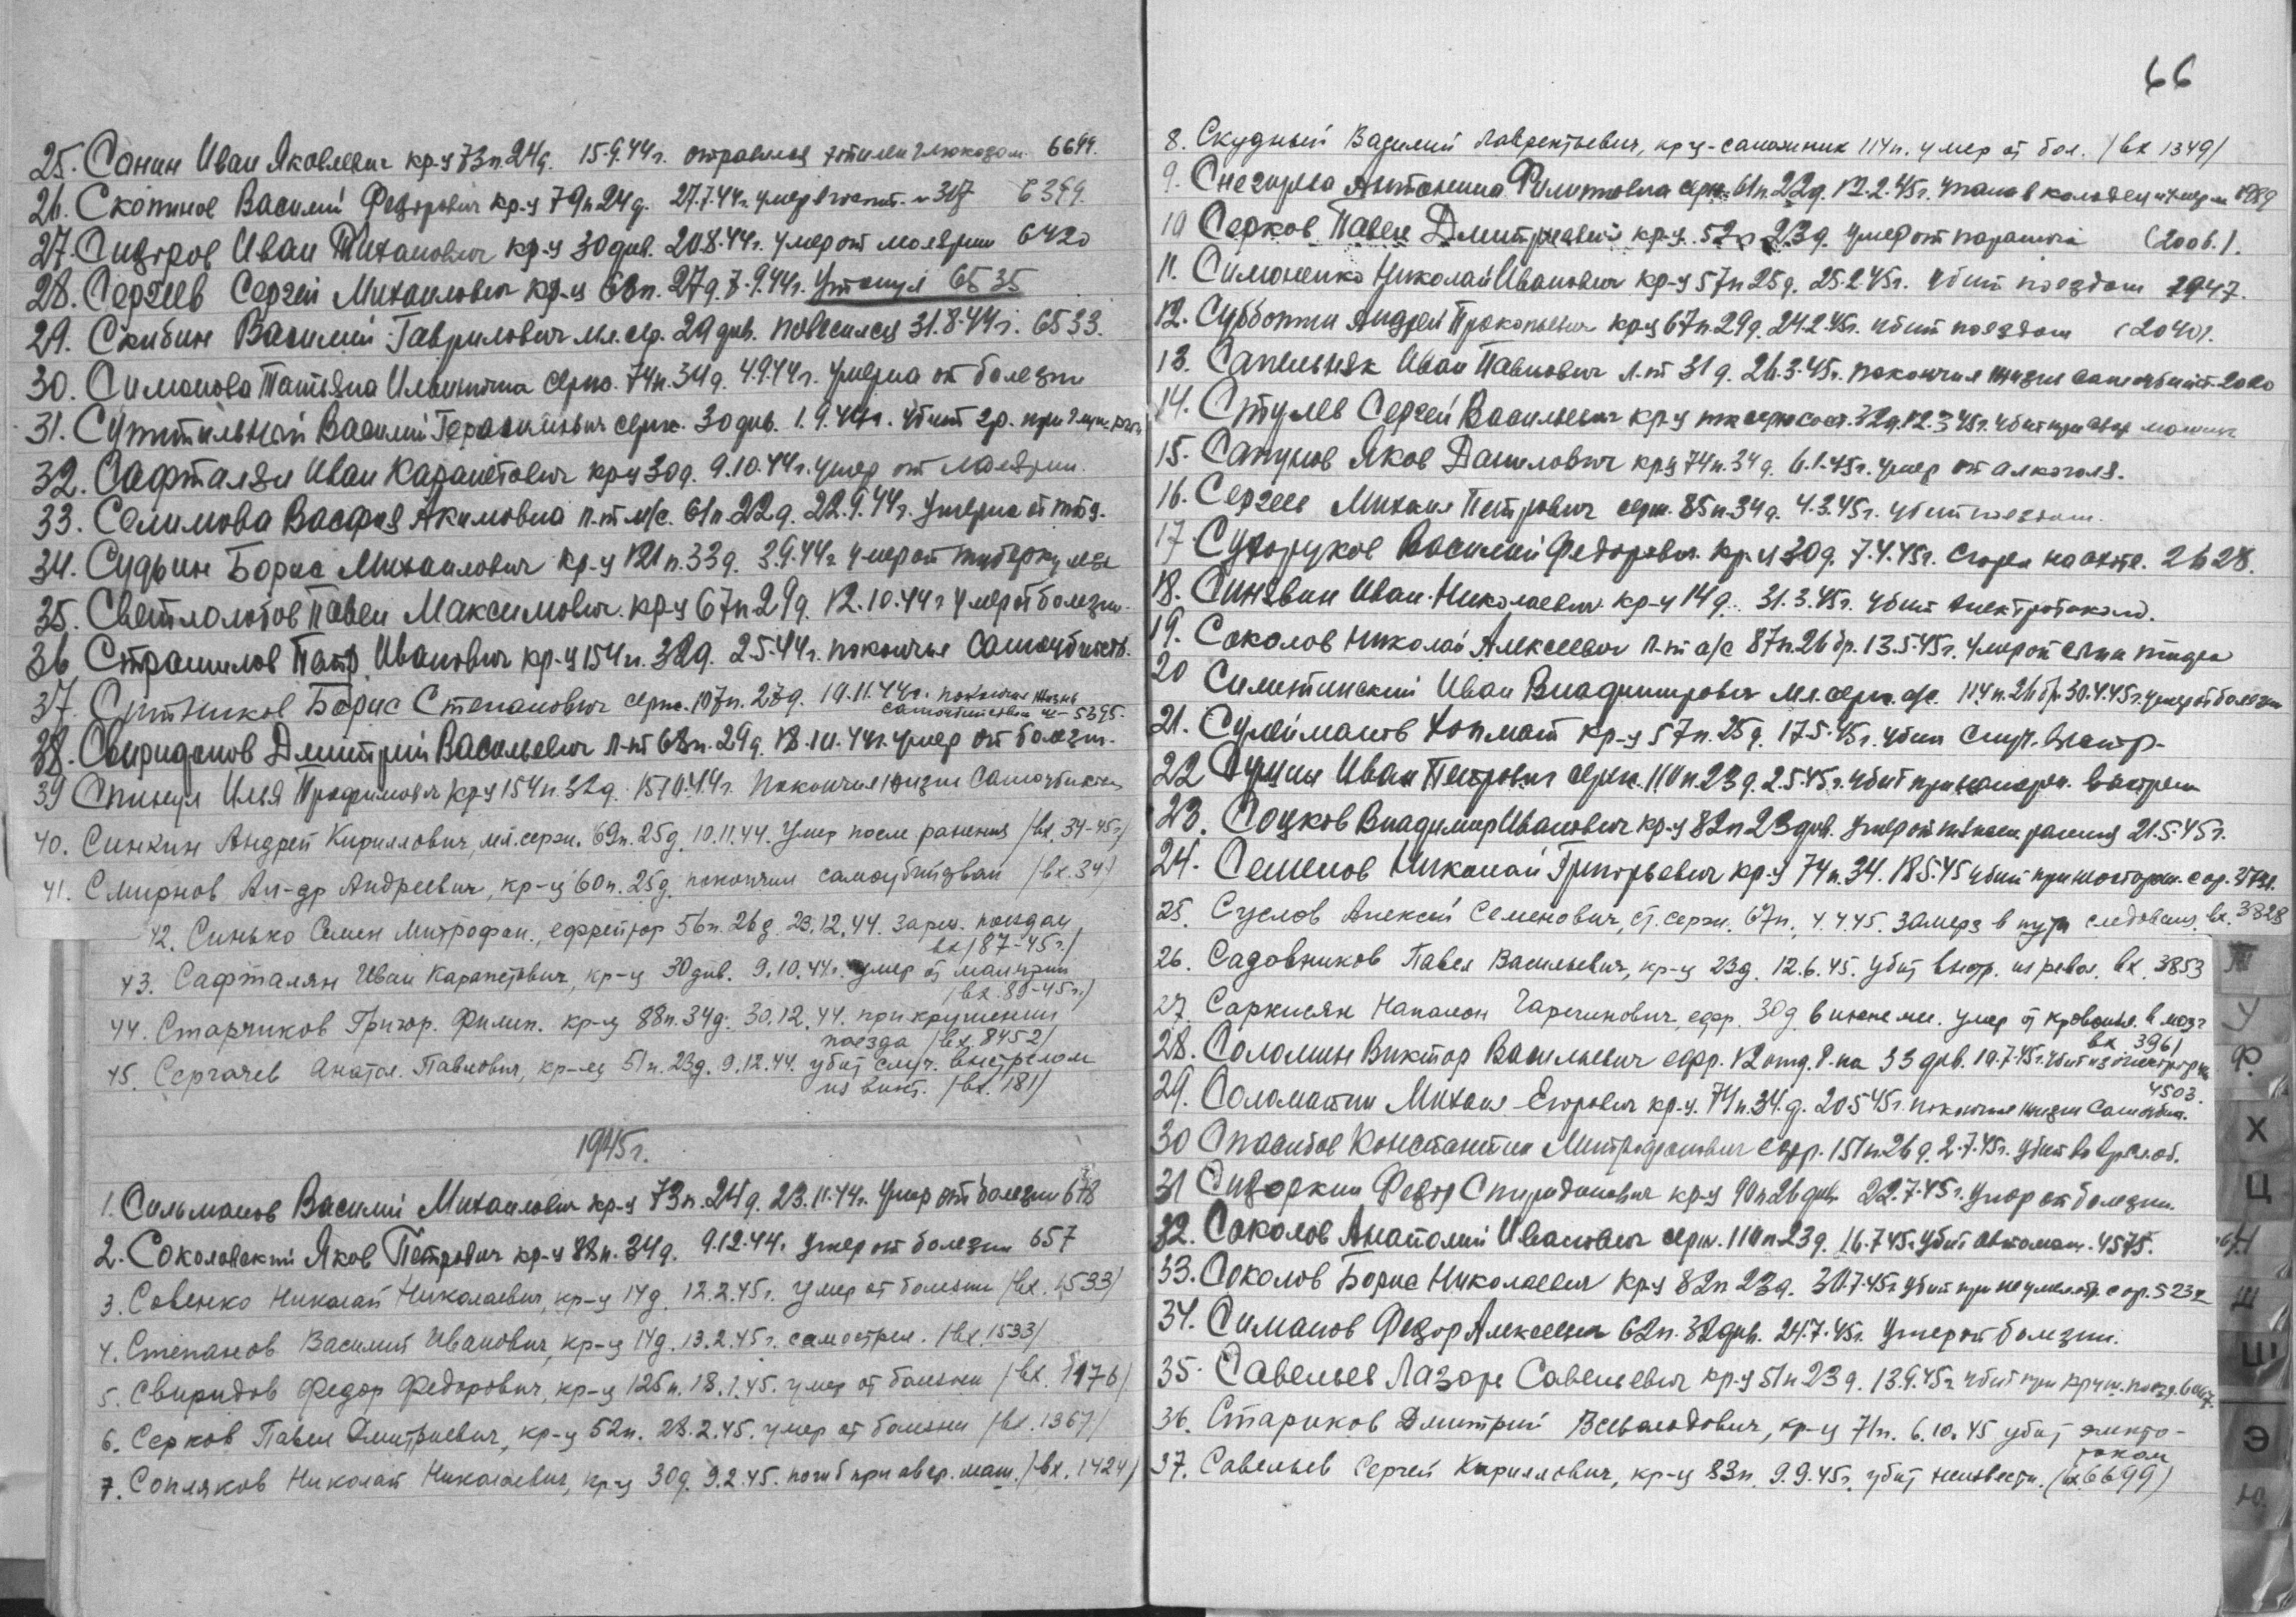 25. Санин Иван Яковлевич кр-ц 73п. 24д. 15.9.44г. отравился этилен гликолем 6699.
26. Скопинов Василий Федорович кр-ц 79п 24д. 27.7.44г. умер в госпит. 6399.
27. Сидоров Иван Тиханович кр-ц 30див. 20.8.44г. умер от малярии 6420
28. Сергеев Сергей Михаилович кр-ц 68п. 27д. 7.9.44г. Утонул 6535
29. Скибин Василий Гаврилович мл.сер. 29див. повесился 31.8.44г. 6533.
30. Симонова Татьяна Ильинична серж. 74п. 34д. 4.9.44г. умерла от болезни
31. Василий Герасимович серж. 30див. 1.9.44г. убит гр. при
32. Сафталян Иван Карапетович кр-ц 30д. 9.10.44г. умер от малярии.
33. Селимова Васфия Акимовна л-т м/с. 61п. 22д. 22.9.44г. Умерла от
34. Судьин Борис Михаилович кр-ц 121п. 33д. 3.9.44г умер от туберкулеза
35. Светлолобов Павел Максимович кр-ц 67п 29д. 12.10.44г умер от болезни.
36 Страшилов Петр Иванович кр-ц 154п. 32д. 2.5.44г. покончил самоубийств.
37. Ситников Борис Степанович серж. 107п. 27д. 19.11.44г. покончил жизнь
самоубийством 5395.
38. Свиридонов Дмитрий Васильевич л-т 68п. 29д. 18.10.44г. умер от болезн.
39 Спинул Илья Трофимович кр-ц 154п. 32д. 15.10.44г. Покончил жизнь самоубийств
40. Синкин Андрей Кириллович, мл.серж. 69п. 25д. 10.11.44. Умер после ранения /вх. 34-45г/
41. Смирнов Ал-др Андреевич, кр-ц 60п. 25д. покончил самоубийством /вх. 34/
42. Синько Семен Митрофан., ефрейтор 56п. 26д. 23.12.44. зарез. поездом
вх/87-45г./
43. Сафталян Иван Карапетович, кр-ц 30див. 9.10.44г. умер от малярии
/вх. 89-45г./
44. Старчиков Григор. Филип. кр-ц 88п. 34д. 30.12.44. при крушении
поезда /вх. 8452/
45. Сергачев Анатол. Павлович, кр-ец 51п. 23д. 9.12.44. убит случ. выстрелом
из винт. /вх. 181/
1945г.
1. Сильманов Василий Михаилович кр-ц 73п. 24д. 23.11.44г. умер от болезни 678
2. Соколовский Яков Петрович кр-ц 88п. 34д. 9.12.44г. умер от болезни 657
3. Савенко Николай Николаевич, кр-ц 14д. 12.2.45г. умер от болезни /вх. 1533/
4. Степанов Василий Иванович, кр-ц 14д. 13.2.45г. самострел. /вх. 1533/
5. Свиридов Федор Федорович, кр-ц 125п. 18.1.45. умер от болезни /вх. 1176/
6. Серков Павел Дмитриевич, кр-ц 52п. 28.2.45. умер от болезни /вх. 1367/
7. Сопляков Николай Николаевич, кр-ц 30д. 9.2.45. погиб при авар. маш. /вх. 1424/
66
8. Скудный Василий Лаврентьевич, кр-ц-сапожник 114п. умер от бол. /вх 1349/
9. Снегирева Антонина Филиповна серж. 61п. 22д. 12.2.45г. упала в колодец и умерла 1989
10 Серков Павел Дмитриевич кр-ц. 52п 23д. умер от паралича (2006.).
11. Симоненко Николай Иванович кр-ц 57п 25д. 25.2.45г. убит поездом 2947.
12. Субботин Андрей Прокопьевич кр-ц 67п. 29д. 24.2.45г. убит поездом (2040).
13. Сапельняк Иван Павлович л-т 31д. 26.3.45г. покончил жизнь самоубийст. 2020
14. Стулев Сергей Васильевич кр-ц 32д. 12.3.45г. убит при авар машин
15. Сапунов Яков Данилович кр-ц 74п. 34д. 6.1.45г. умер от алкоголя.
16. Сергеев Михаил Петрович серж. 85п. 34д. 4.3.45г. убит поездом.
17 Сухоруков Василий Федорович кр-ц 30д. 7.4.45г. сгорел на охоте. 2628.
18. Синявин Иван Николаевич кр-ц 14д. 31.3.45г. убит электротоком.
19. Соколов Николай Алексеевич л-т а/с 87п. 26бр. 13.5.45г. умер от сыпн тифа
20 Симетинский Иван Владимирович мл.серж. а/с. 114п. 26бр. 30.4.45г. умер от болезни
21. Сулейманов Юлмат кр-ц 57п. 25д. 17.5.45г. убит случ. выстр.
22 Сушин Иван Петрович серж. 110п. 23д. 2.5.45г. убит при неосторож. выстреле
23. Соцков Владимир Иванович кр-ц 82п 23див. умер от ранения 21.5.45г.
24. Семенов Николай Григорьевич кр-ц 74п. 34. 18.5.45 убит при неосторож. с ор.
25. Суслов Алексей Семенович, ст. серж. 67п., 4.4.45. замерз в пути следования. вх. 3828
26. Садовников Павел Васильевич, кр-ц 23д. 12.6.45. убит выстр. из револ. вх. 3853
27. Саркисян Напалон Гарегинович, ефр. 30д. в июне м. умер от кровоизл. в мозг
вх 3961
28. Соломин Виктор Васильевич ефр. 12отд. 33див. 10.7.45г. убит
4503.
29. Соломатин Михаил Егорович кр-ц. 74п. 34.д. 20.5.45г. покончил жизнь самоубий.
30 Спасибов Константин Митрофанович ефр. 157п. 26д. 2.7.45г. убит во врем. об.
31 Сидоркин Федор Спиридонович кр-ц 90п 26див. 22.7.45г. умер от болезни.
32. Соколов Анатолий Иванович серж. 110п. 23д. 16.7.45г. убит автомат. 4575.
33. Соколов Борис Николаевич кр-ц 82п 23д. 30.7.45г убит при неумел. с ор. 523
34. Симанов Федор Алексеевич 62п. 32див. 24.7.45г. умер от болезни.
35. Савельев Лазарь Савельевич кр-ц 51п 23д. 13.9.45г убит при круш. поезд. 6067.
36. Стариков Дмитрий Всеволодович, кр-ц 71п. 6.10.45 убит электро-
током
37. Савельев Сергей Кириллович, кр-ц 83п. 9.9.45г. убит неизвестн. (вх 6699)
Т
У
Ф
Х
Ц
Ч
Ш
Щ
Э
Ю